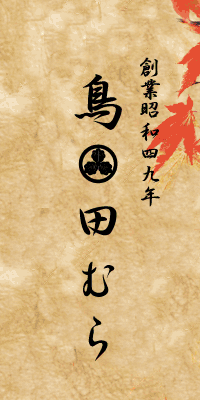 創業昭和四九年
鳥田むら